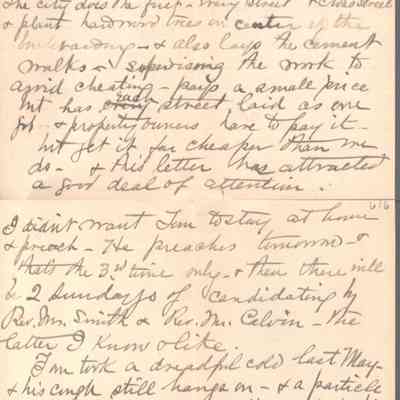 the city does the prep - every street & cross street
& plant hardwood trees in center of the
& also lays the cement
walks - supervising the work to
avoid cheating - pays a small price
but has each street laid as one
job - & property owners have to pay it -
but get it far cheaper than we
do - & this letter has attracted
a good deal of attention.
616
I didn't want Jim to stay at home
& preach - He preaches tomorrow - &
that's the 3rd time only - & then there will
be 2 Sundays of candidating by
Rev. Mr. Smith & Rev. Mr. Colvin - the
latter I know & like.
Jim took a dreadful cold last May -
& his cough still hangs on - & a particle